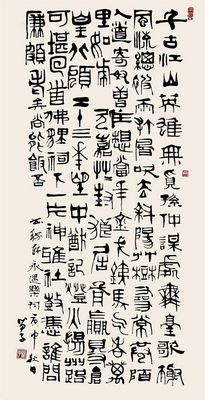 千古江山英雄無覓孫仲謀處舞臺歌榭
風流總被雨打風吹去斜陽艸樹尋常巷陌
人道寄奴曾住想當年金戈鐵馬氣吞萬
里如虎元嘉艸艸封狼居胥贏得倉
皇北顧四十三年望中猶記烽火揚州路
可堪回首佛狸祠下一片神鴉社鼓憑誰問
廉頗老矣尚能飯否
稼軒永遇樂詞